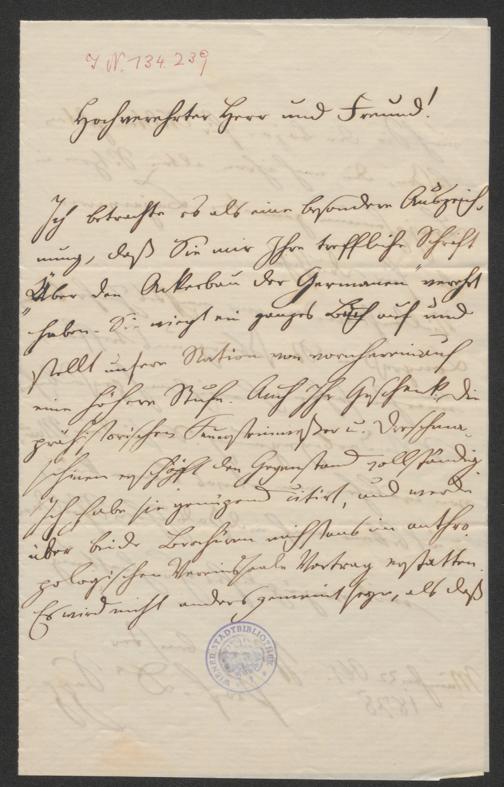 I.N. 134.239
Hochverehrter Herr und Freund!
Ich betrachte es als eine besondere Auszeich-
nung, daß Sie mir Ihre treffliche Schrift
"Über den Ackerbau der Germanen" verehrt
haben. Sie wiegt ein ganzes Buch auf und
stellt unsere Nation von vornherein auf
eine höhere Stufe. Auch Ihr Geschenk: die
prähistorischen Feuersteinmesser u. Dreschma-
schinen erschöpft den Gegenstand vollständig
Ich habe sie genügend citirt, und werde
über beide Brochüren nächstens im anthro-
pologischen Vereinssaale Vortrag erstatten.
Es wird nicht anders gemeint seyn, als daß
WIENER STADTBIBLIOTHEK